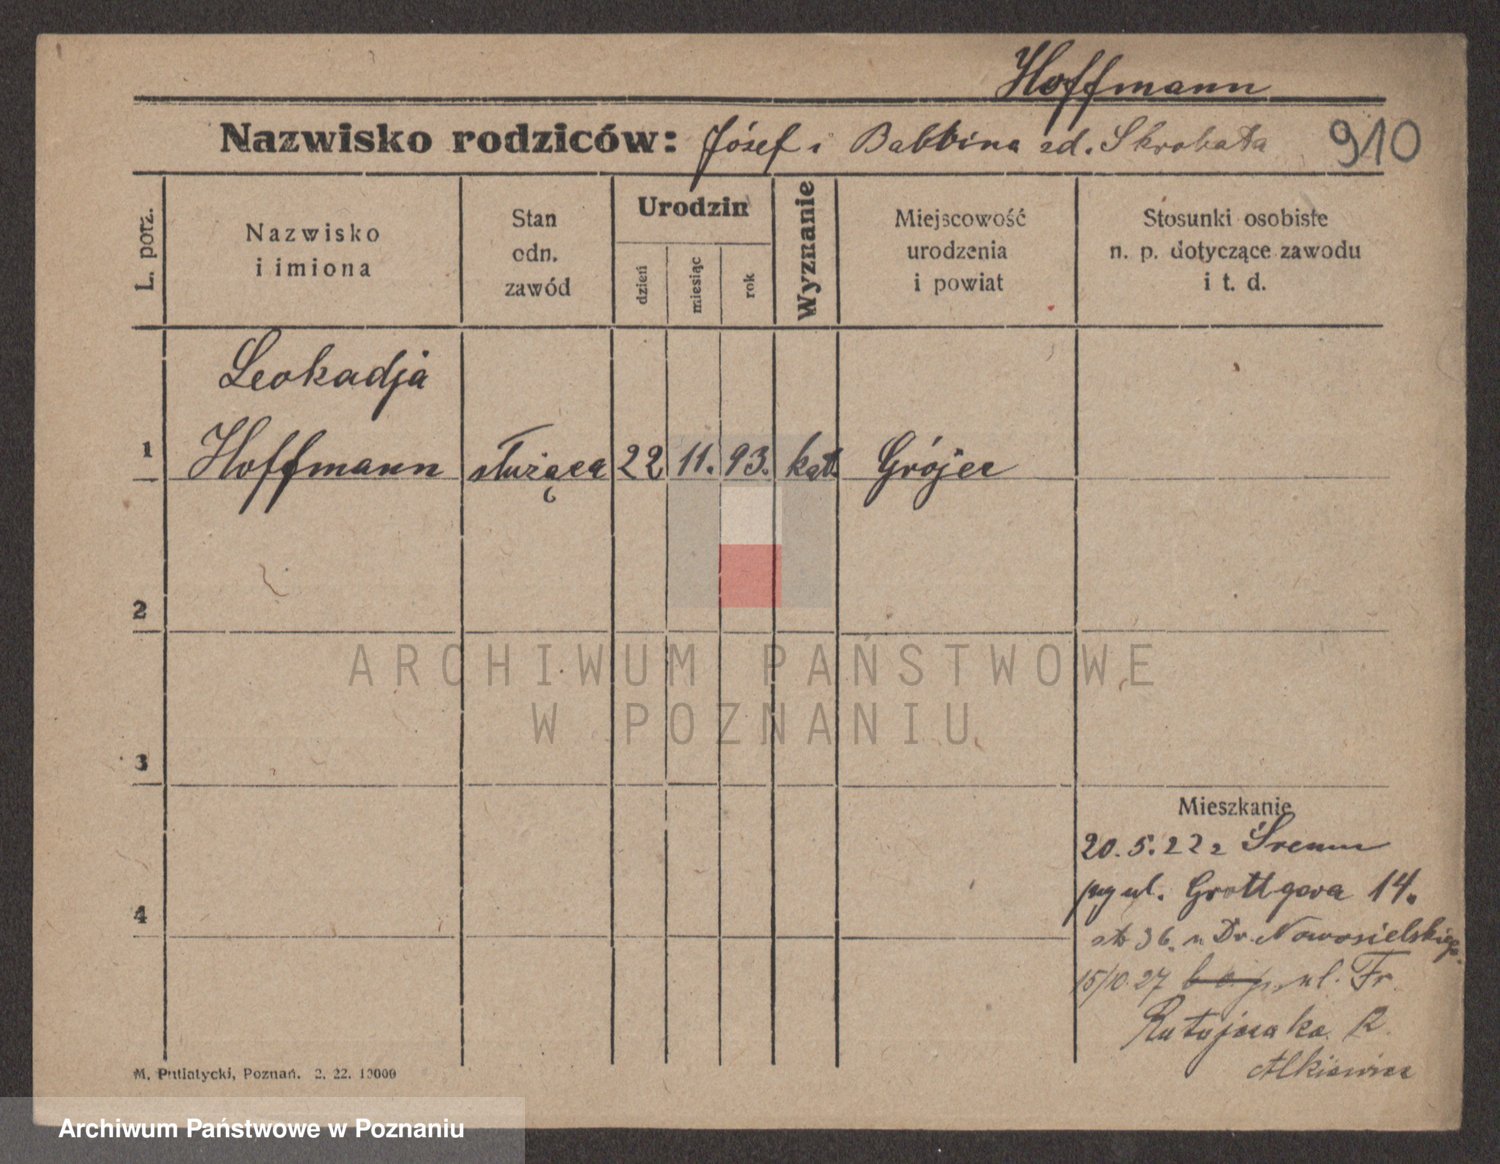 Hoffmann
Nazwisko rodziców: Józef i Balbina zd. Skrobała
910
L. porz.
Nazwisko i imiona
Stan odn. zawód
Urodzin
dzień
miesiąc
rok
Wyznanie
Miejscowość urodzenia i powiat
Stosunki osobiste n. p. dotyczące zawodu i t. d.
Leokadja
1 Hoffmann służąca 22 11. 93. kat. Grójec
2
3
4
Mieszkanie
20.5.22 z Śremu
ul. Grottgera 14.
36. u Dr. Nowosielskiego
15/10.27 ul. Fr.
Ratajczaka
Alkiewicz
M. Putiatycki, Poznań. 2. 22. 10000
ARCHIWUM PAŃSTWOWE
W POZNANIU
Archiwum Państwowe w Poznaniu